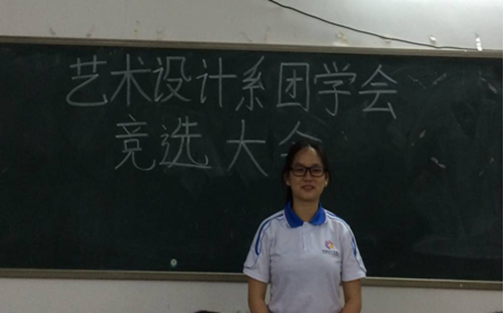 艺术设计系团学会
竞选大会